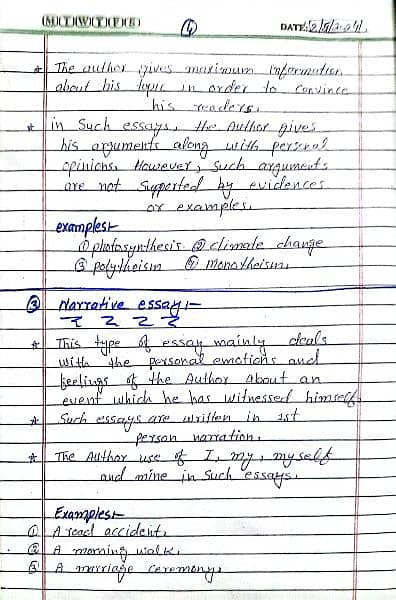 M T W T F S
④ DATE: 2/5/2024
* The author gives maximum information
about his topic in order to convince
his readers.
* in Such essays, the Author gives
his arguments along with personal
opinions. However, Such arguments
are not Supported by evidences
or examples.
examples:-
① photosynthesis ② climate change
③ polytheism ④ monotheism.
③ Narrative essay:-
* This type of essay mainly deals
with the personal emotions and
feelings of the Author about an
event which he has witnessed himself.
* Such essays are written in 1st
person narration.
* The Author use of I, my, myself
and mine in Such essays.
Examples:-
① A road accident.
② A morning walk.
③ A marriage ceremony.